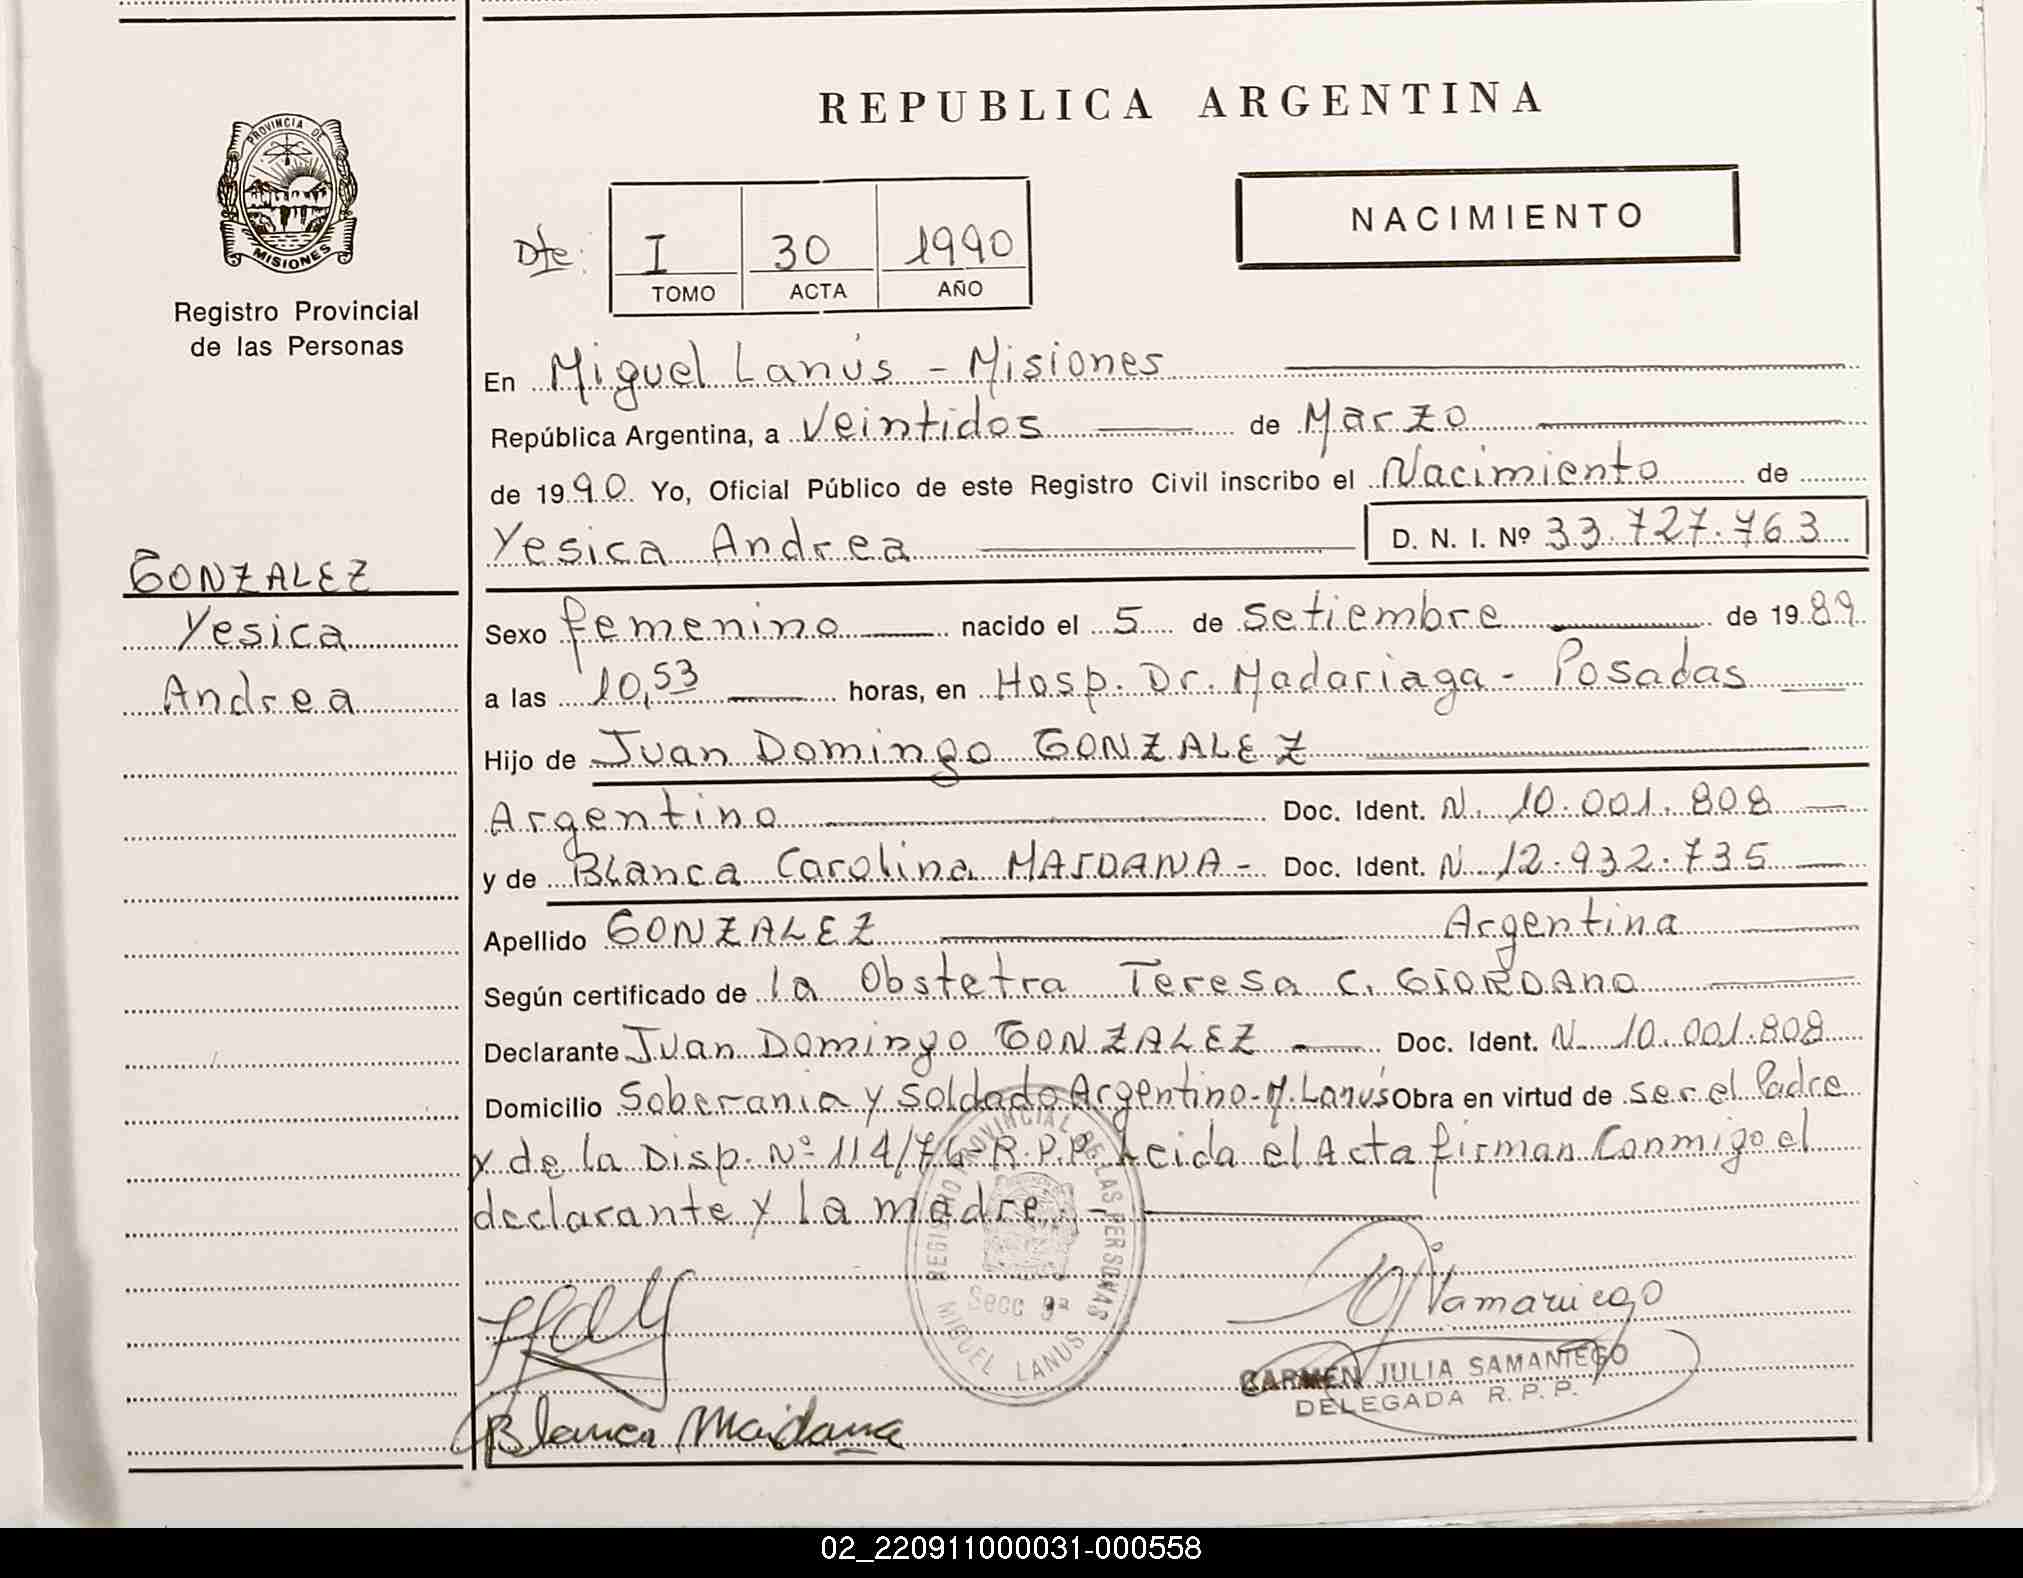 REPUBLICA ARGENTINA
PROVINCIA DE
MISIONES
Registro Provincial
de las Personas
NACIMIENTO
Dte: I 30 1990
TOMO ACTA AÑO
En Miguel Lanús - Misiones
República Argentina, a Veintidos de Marzo
de 1990 Yo, Oficial Público de este Registro Civil inscribo el Nacimiento de
Yesica Andrea D. N. I. Nº 33.727.763
GONZALEZ
Yesica
Andrea
Sexo femenino nacido el 5 de Setiembre de 1989
a las 10,53 horas, en Hosp. Dr. Madariaga - Posadas
Hijo de Juan Domingo GONZALEZ
Argentino Doc. Ident. N. 10.001.808
y de Blanca Carolina MAIDANA - Doc. Ident. N 12.932.735
Apellido GONZALEZ Argentina
Según certificado de la Obstetra Teresa C. GIORDANO
Declarante Juan Domingo GONZALEZ Doc. Ident. N. 10.001.808
Domicilio Soberania y Soldado Argentino - M. Lanús Obra en virtud de ser el Padre
y de la Disp. Nº 114/76-R.P.P. Leida el Acta firman Conmigo el
declarante y la madre.-
REGISTRO PROVINCIAL DE LAS PERSONAS
Secc 9ª
MIGUEL LANUS
Samaniego
CARMEN JULIA SAMANIEGO
DELEGADA R. P. P.
Blanca Maidana
02_220911000031-000558